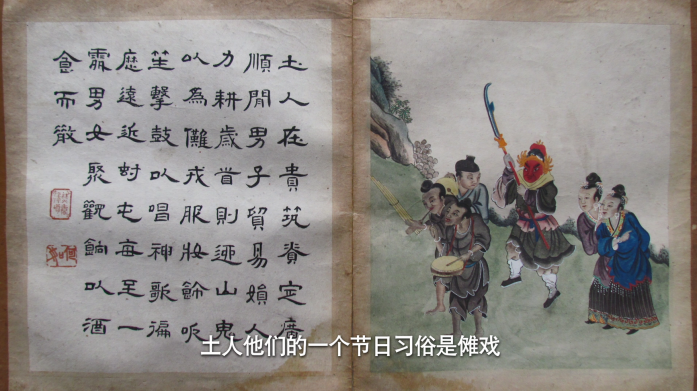 土人在貴筑貴定廣
順閒男子貿易婦人
力耕歲首則迎山鬼
以為儺戎服妝飾吹
笙擊鼓以唱神歌徧
歷遠近村屯每至一
寨男女聚觀餉以酒
食而散
土人他们的一个节日习俗是傩戏